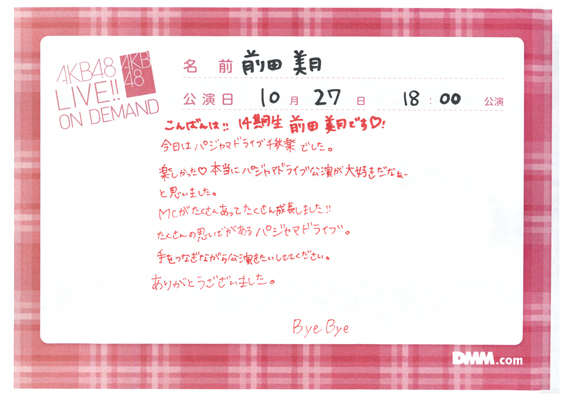 AKB48
LIVE!!
ON DEMAND
AKB
48
名 前 前田 美月
公演日 10月 27日 18:00 公演
こんばんは!! 14期生 前田美月です♡!
今日はパジャマドライブ千秋楽でした。
楽しかった♡本当にパジャマドライブ公演が大好きだなぁー
と思いました。
MCがたくさんあってたくさん成長しました!!
たくさんの思いでがあるパジャマドライブ。
手をつなぎながら公演を
してください。
ありがとうございました。
Bye Bye
DMM.com